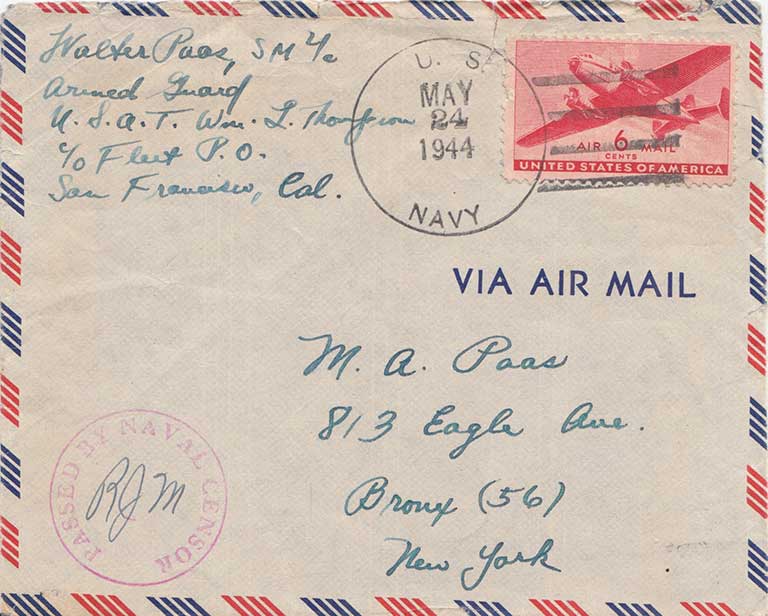 Walter Paas, SM 4/c
Armed Guard
U.S.A.T. Wm. L. Thompson
c/o Fleet P.O.
San Francisco, Cal.
U. S.
MAY
24
1944
NAVY
AIR 6 MAIL
CENTS
UNITED STATES OF AMERICA
VIA AIR MAIL
M. A. Paas
813 Eagle Ave.
Bronx (56)
New York
PASSED BY NAVAL CENSOR
RJM